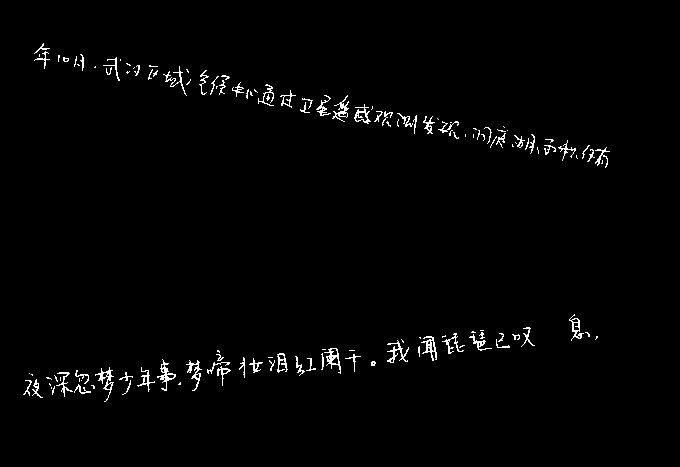 年10月,武汉区域气候中心通过卫星遥感观测发现,洞庭湖面积仅有
夜深忽梦少年事,梦啼妆泪红阑干。我闻琵琶已叹息,